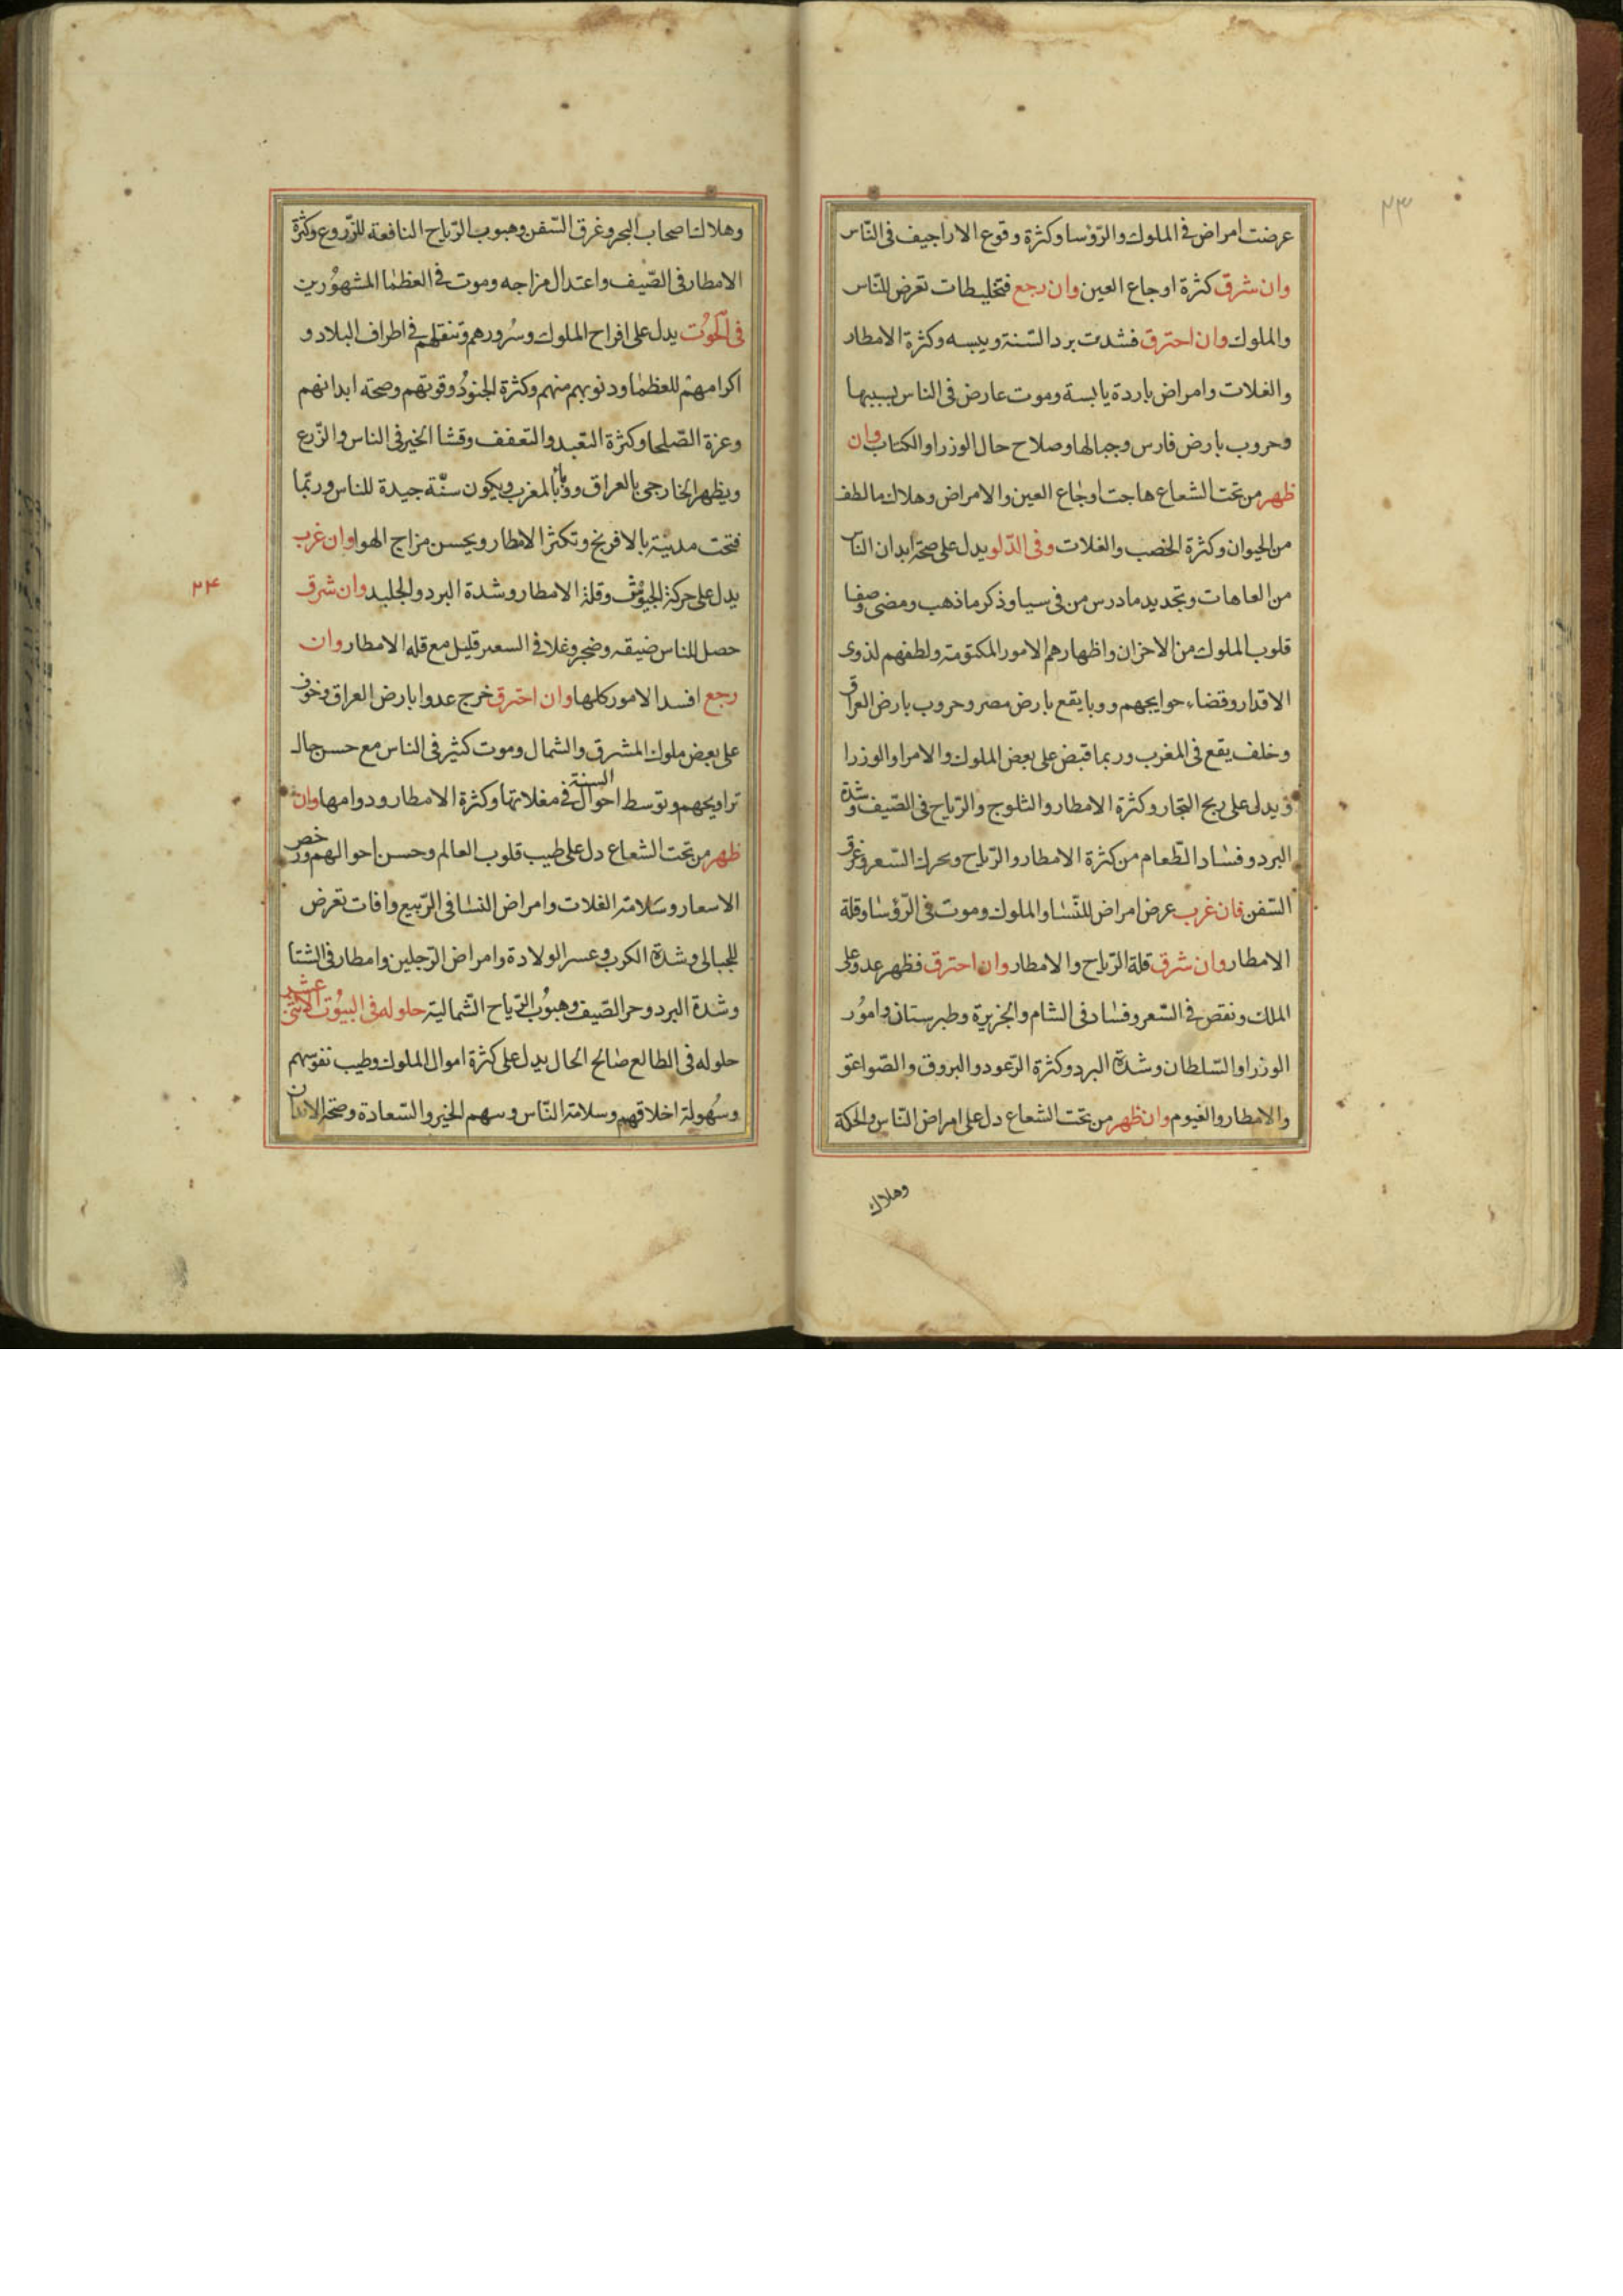 ٢٣
عرضت امراض فى الملوك والرّؤسا وكثرة وقوع الاراجيف فى النّاس
وان شرق كثرة اوجاع العين وان رجع فتخليطات تعرض للنّاس
والملوك وان احترق فشدت برد السّنة ويبسه وكثرة الامطار
والغلات وامراض باردة يابسة وموت عارض فى الناس بسببها
وحروب بارض فارس وجبالها وصلاح حال الوزرا والكتاب وان
ظهر من تحت الشعاع هاجت اوجاع العين والامراض وهلاك مالطف
من الحيوان وكثرة الخصب والغلات وفى الدّلو يدل على صحّة ابدان الناس
من العاهات وتجديد ما درس من فى سيا وذكر ما ذهب ومضى وصفا
قلوب الملوك من الاخزان واظهارهم الامور المكتومة ولطفهم لذوى
الاقدار وقضاء حوايجهم ووبا يقع بارض مصر وحروب بارض العراق
وخلف يقع فى المغرب وربما قبض على بعض الملوك والامرا والوزرا
ويدل على ربح التجار وكثرة الامطار والثلوج والرّياح فى الصّيف وشدة
البرد وفساد الطّعام من كثرة الامطار والرّياح وتحرك السّعر وغرق
السّفن فان غرب عرض امراض للنّسا والملوك وموت فى الرّؤسا وقلة
الامطار وان شرق قلة الرّياح والامطار وان احترق فظهر عدو على
الملك ونقص فى السّعر وفساد فى الشام والجزيرة وطبرستان وامور
الوزرا والسّلطان وشدة البرد وكثرة الرّعود والبروق والصّواعق
والامطار والغيوم وان ظهر من تحت الشعاع دل على امراض النّاس والحكة
وهلاك
وهلاك اصحاب البحر وغرق السّفن وهبوب الرّياح النافعة للزّروع وكثرة
الامطار فى الصّيف واعتدال مزاجه وموت فى العظما المشهورين
فى الحوت يدل على افراح الملوك وسرورهم وتنقلهم فى اطراف البلاد و
اكرامهم للعظما ودنوبهم منهم وكثرة الجنود وقوتهم وصحة ابدانهم
وعزة الصّلحا وكثرة التعبد والتعفف وفشا الخير فى الناس والزّرع
ويظهر الخارجى بالعراق ووبا بالمغرب ويكون سنة جيدة للناس وربّما
فتحت مدينة بالافرنج وتكثر الامطار ويحسن مزاج الهوا وان غرب
٢٤
يدل على حركة الجيوش وقلة الامطار وشدة البرد والجليد وان شرق
حصل للناس ضيقه وضجر وغلا فى السعر قليل مع قله الامطار وان
رجع افسد الامور كلها وان احترق خرج عدوا بارض العراق وخوف
على بعض ملوك المشرق والشمال وموت كثير فى الناس مع حسن حال
تراويحهم وتوسط احوال السنة فى مغلاتها وكثرة الامطار ودوامها وان
ظهر من تحت الشعاع دل على طيب قلوب العالم وحسن احوالهم ورخص
الاسعار وسلامة الغلات وامراض النسا فى الرّبيع وافات تعرض
للحبالى وشدة الكرب وعسر الولادة وامراض الرّجلين وامطار فى الشتا
وشدة البرد وحر الصّيف وهبوب الرّياح الشّمالية حلوله فى البيوت الاثنى عشر
حلوله فى الطالع صالح الحال يدل على كثرة اموال الملوك وطيب نفوسهم
وسهولة اخلاقهم وسلامة النّاس وسهم الخير والسّعادة وصحة الابدان